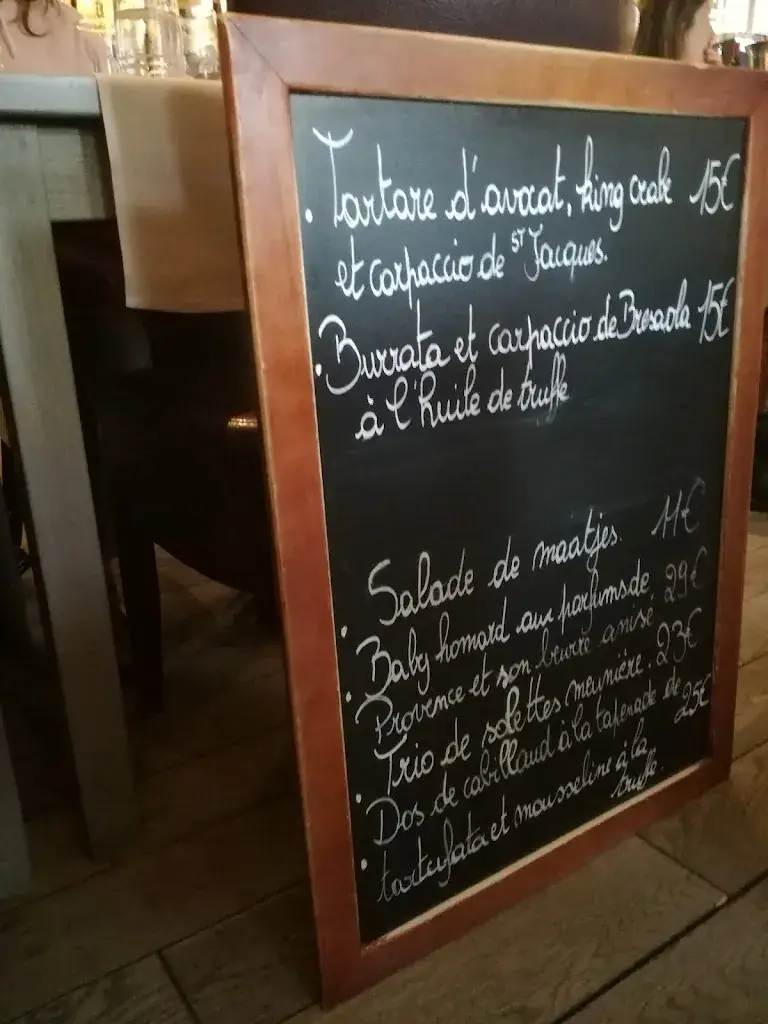 . Tartare d'avocat, king crabe 15€
et carpaccio de ST Jacques.
. Burrata et carpaccio de Bresaola 15€
à l'huile de truffe
. Salade de maatjes. 11€
. Baby homard aux parfums de 29€
Provence et son beurre anisé.
. Trio de solettes meunière. 23€
. Dos de cabillaud à la tapenade de 25€
tartufata et mousseline à la
truffe.